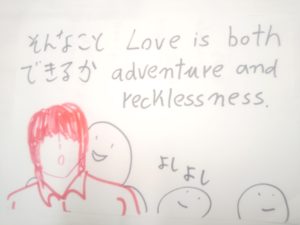 そんなこと
できるか
Love is both
adventure and
recklessness.
よし
よし